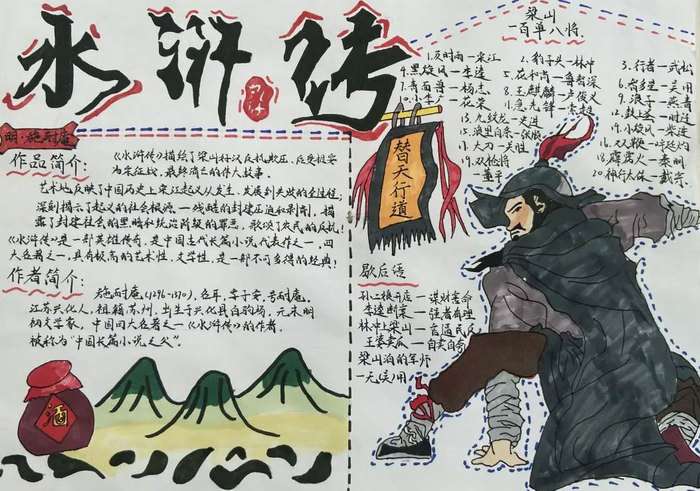 水浒传
明·施耐庵
作品简介:
《水浒传》描绘了梁山好汉反抗欺压、受招安
为宋征战,最终消亡的伟大故事。
艺术地反映了中国历史上宋江起义从发生、发展到失败的全过程,
深刻揭示了起义的社会根源、残酷的封建压迫和剥削,揭
露了封建社会的黑暗和统治阶级的罪恶,歌颂了农民的反抗!
《水浒传》是一部英雄传奇,是中国古代长篇小说代表作之一,四
大名著之一,具有极高的艺术性、文学性,是一部不可多得的经典!
作者简介:
施耐庵(1296-1370),名耳,字子安,号耐庵,
江苏兴化人,祖籍苏州,出生于兴化县白驹场,元末明
初文学家,中国四大名著之一《水浒传》的作者,
被称为“中国长篇小说之父”。
酒
替天行道
梁山
一百单八将
1.及时雨—宋江 2.豹子头—林冲 3.行者—武松
4.黑旋风—李逵 5.花和尚—鲁智深 6.智多星—吴用
7.青面兽—杨志 8.玉麒麟—卢俊义 9.浪子—燕青
10.小李广—花荣 11.急先锋—索超 12.鼓上蚤—时迁
13.九纹龙—史进 14.小旋风—柴进
15.浪里白条—张顺 16.双鞭—呼延灼
大刀—关胜 18.霹雳火—秦明
19.双枪将—董平 20.神行太保—戴宗
歇后语
孙二娘开店—谋财害命
李逵断案—强者有理
林冲上梁山—官逼民反
王婆卖瓜—自卖自夸
梁山泊的军师
—无(吴)用